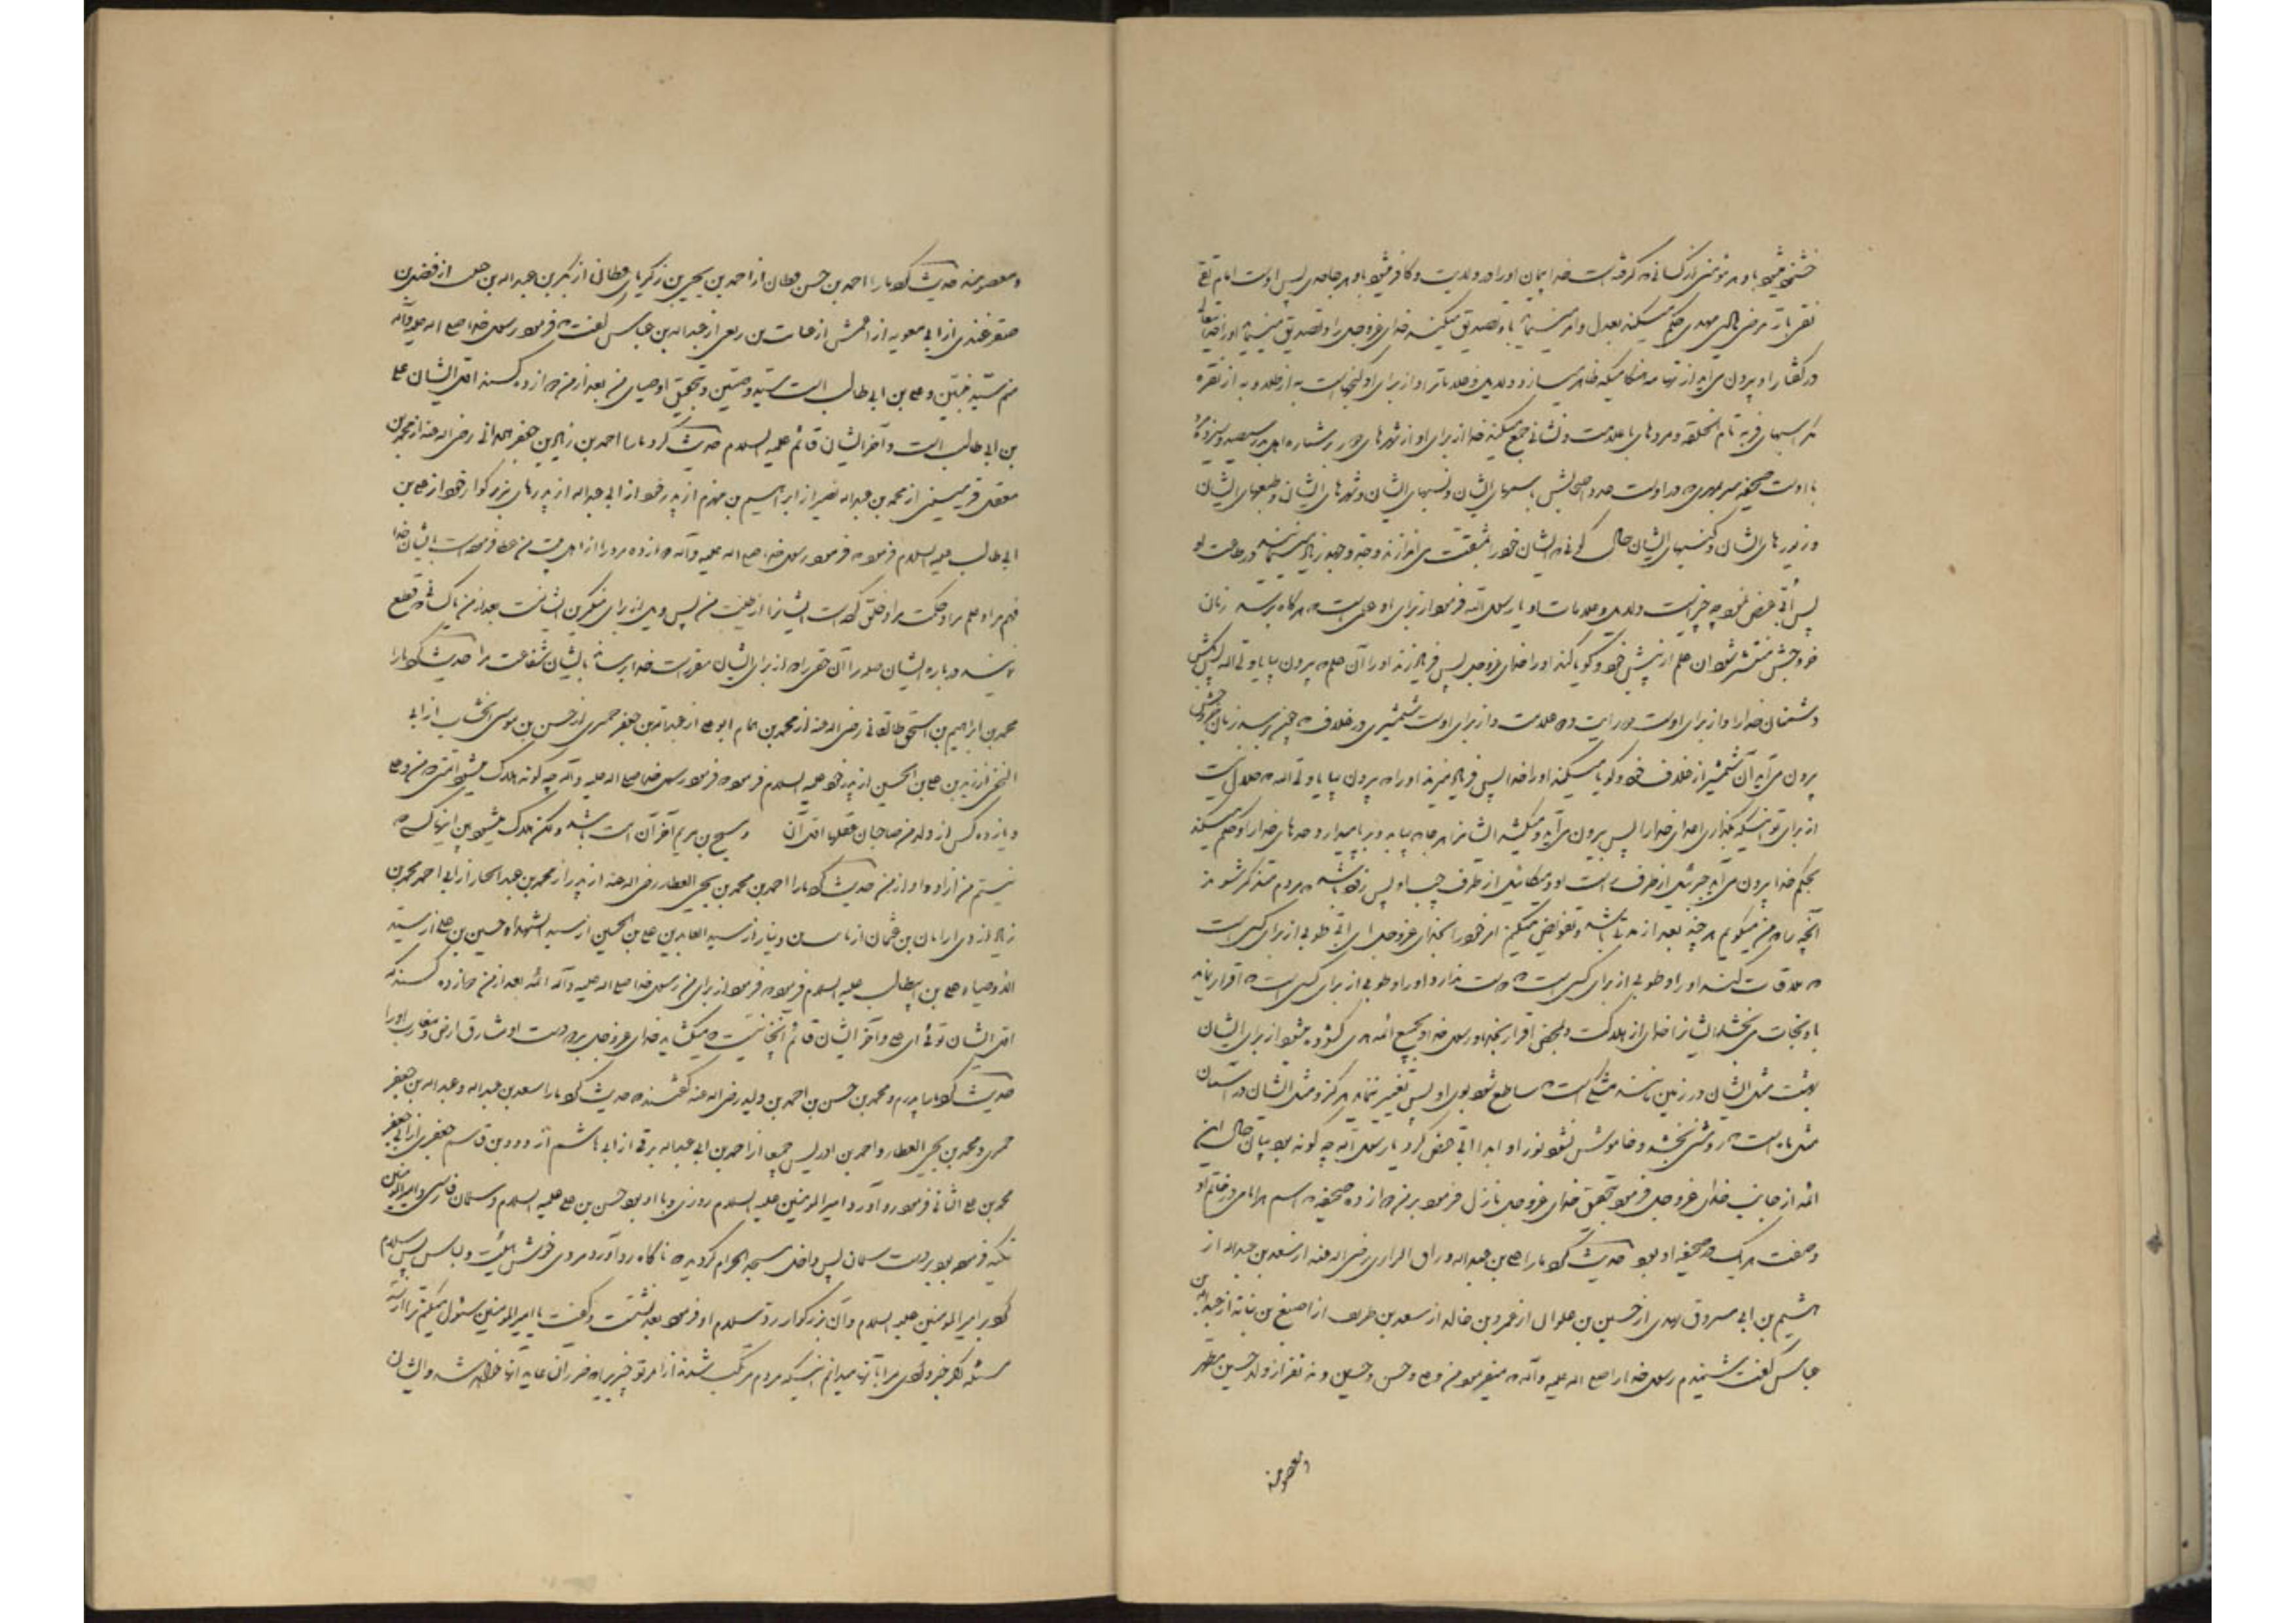 خشنود میشود باو هر مؤمنی از کسانی که گرفته است خدا ایمان او را در ولایت و کافر میشود باو هر جاحدی پس اوست امام تقی
نقی بار مرضی هادی مهدی حکم میکند بعدل و امر مینماید باو تصدیق میکند خدای عزوجل را و تصدیق مینماید او را خدایتعالی
در گفتار او بیرون می‌آید از تهامه هنگامیکه ظاهر میسازد دلایل و علامات را و از برای او گنجهاست نه از طلا و نه از نقره
مگر اسبهای فربه تام الخلقه و مردهای با علامت و نشانی جمع میکند خدا از برای او از شهرهای دور بر شماره اهل بدر سیصد و سیزده مرد
با اوست صحیفه سر بمهری که در اوست عدد اصحابش باسمهای ایشان و نسبهای ایشان و شهرهای ایشان و طبعهای ایشان
و زیورهای ایشان و کنیتهای ایشان حال کونی که ایشان خود را بمشقت می‌اندازند و جد و جهد زیاد مینمایند در طاعت او
پس ابی عرض نمود چه چیز است دلایل و علامات او یا رسول الله فرمود از برای او علمی است که هرگاه برسد زمان
خروجش منتشر شود آن علم از پیش خود و گویا کند او را خدای عزوجل پس فریاد زند او را آن علم که بیرون بیا یا ولی الله پس بکش
دشمنان خدا را و از برای اوست دو رایت و دو علامت و از برای اوست شمشیری در غلاف که چون برسد زمان خروجش
بیرون می‌آید آن شمشیر از غلاف خود و گویا میکند او را خدا پس فریاد میزند او را که بیرون بیا یا ولی الله که حلال نیست
از برای تو اینکه بگذاری اعدای خدا را پس بیرون می‌آید و میکشد ایشانرا هر جا بیابد و برپا میدارد حدهای خدا را و حکم میکند
بحکم خدا بیرون می‌آید جبرئیل از طرف راست او و میکائیل از طرف چپ او پس زود باشد که مردم متذکر شوند
آنچه را که من میگویم هر چند بعد از مدتی باشد و تفویض میکنم امر خود را بخدای عزوجل ای ابی طوبی از برای کسی است
که ملاقات کند او را و طوبی از برای کسی است که دوست بدارد او را و طوبی از برای کسی است که اقرار نماید
باو نجات می‌بخشد ایشانرا خدای از هلاکت و بمحض اقرار بخدا و رسول خدا و بجمیع ائمه می گشوده میشود از برای ایشان
بهشت مثل ایشان در زمین مانند مشکی است که ساطع شود بوی او پس تغییر ننماید هرگز و مثل ایشان در آسمان
مثل ماه است که روشنی بخشد و خاموش نشود نور او ابدا ابی عرض کرد یا رسول الله چه گونه بود بیان حال این
ائمه از جانب خدای عزوجل فرمود بتحقیق خدای عزوجل نازل فرمود بر من دوازده صحیفه که اسم هر امامی در خاتم او
و صفت هر یک در صحیفه او بود حدیث کرد ما را علی بن عبدالله وراق الرازی رضی الله عنه از سعد بن عبدالله از
هشیم بن ابی مسروق نهدی از حسین بن علوان از عمرو بن خالد از سعد بن طریف از اصبغ بن نباته از عبدالله بن
عباس گفت شنیدم رسول خدا را صلی الله علیه وآله که میفرمود من و علی و حسن و حسین و نه نفر از ولد حسین مطهر
و معصومند
و معصومند حدیث کرد ما را احمد بن حسن قطان از احمد بن یحیی بن زکریای قطان از بکر بن عبدالله بن حبیب از فضل بن
صقر عبدی از ابی معویه از اعمش از عبایة بن ربعی از عبدالله بن عباس گفت که فرمود رسول خدا صلی الله علیه وآله
منم سید نبیین و علی بن ابی طالب است سید وصیین و بتحقیق اوصیای من بعد از من دوازده کسند اول ایشان علی
بن ابی طالب است و آخر ایشان قائم علیه السلام حدیث کرد ما را احمد بن زیاد بن جعفر همدانی رضی الله عنه از محمد بن
معقل قرمیسینی از محمد بن عبدالله بصری از ابراهیم بن مهزم از پدر خود از ابی عبدالله از پدرهای بزرگوار خود از علی بن
ابی طالب علیه السلام فرمود که فرمود رسول خدا صلی الله علیه وآله دوازده مرد را از اهل بیت من عطا فرموده است بایشان خدا
فهم مرا و علم مرا و حکمت مرا و خلق کرده است ایشانرا از طینت من پس ویل از برای منکرین ایشانست بعد از من یا کسانی که قطع
نمایند در باره ایشان صله مرا آن حقی را که از برای ایشان مقرر است خدا نرساند بایشان شفاعت مرا حدیث کرد ما را
محمد بن ابراهیم بن اسحق طالقانی رضی الله عنه از محمد بن همام ابوعلی از عبدالله بن جعفر حمیری از حسن بن موسی الخشاب از ابی
المثنی النخعی از زید بن علی بن الحسین از پدر خود علیه السلام فرمود که فرمود رسول خدا صلی الله علیه وآله چه گونه هلاک میشود امتی که من و علی
و یازده کس از ولد من صاحبان عقلها اول آن و مسیح بن مریم آخر آن است باشد ولکن هلاک میشود بین اینها کسی که
نیستم من از او و او از من حدیث کرد ما را احمد بن محمد بن یحیی العطار رضی الله عنه از پدر از محمد بن عبدالجبار از ابی احمد محمد بن
زیاد ازدی از ابان بن عثمان از ثابت بن دینار از سید العابدین علی بن الحسین از سید الشهداء حسین بن علی از سید
الاوصیاء علی بن ابیطالب علیه السلام فرمود که فرمود از برای من رسول خدا صلی الله علیه وآله ائمه بعد از من دوازده کسند که
اول ایشان توئی ای علی و آخر ایشان قائم آنچنانیست که میگشاید خدای عزوجل بر دو دست او مشارق ارض و مغارب او را
حدیث کرد ما را پدرم و محمد بن حسن بن احمد بن ولید رضی الله عنه گفتند که حدیث کرد ما را سعد بن عبدالله و عبدالله بن جعفر
حمیری و محمد بن یحیی العطار و احمد بن ادریس جمیعا از احمد بن ابی عبدالله برقی از ابی هاشم از داود بن قاسم جعفری از ابی جعفر
محمد بن علی الثانی فرمود رو آورد امیر المومنین علیه السلام روزی و با او بود حسن بن علی علیه السلام و سلمان فارسی و امیر المومنین
تکیه فرموده بود بر دست سلمان پس داخل مسجد الحرام گردید که ناگاه رو آورد مردی خوش هیئت و لباس پس سلام
کرد بر امیر المومنین علیه السلام و آن بزرگوار رد سلام او فرمود بعد نشست و گفت یا امیر المومنین سئوال میکنم ترا از سه
مسئله اگر خبر دادی مرا بآنها میدانم اینکه مردم مرتکب شدند از امر تو چیزی را که ضرر آن عاید آنها خواهد شد و ایشان